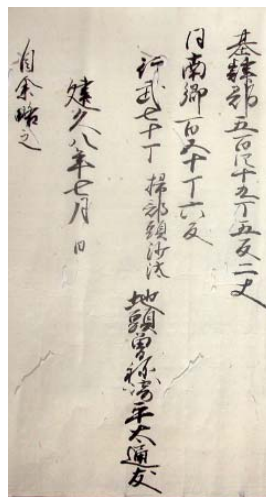 基肄郡五百四十九丁五反二丈
同南郷百五十丁六反
行武七十丁掃部頭沙汰 地頭曽祢崎平太通友
建久八年七月日
自余略之